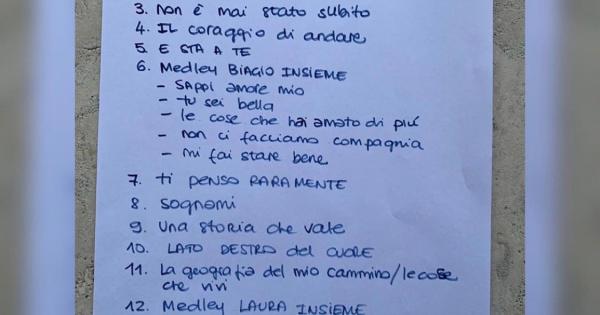 3. Non è mai stato subito
4. IL coraggio di andare
5. E STA A TE
6. Medley BIAGIO INSIEME
- SAPPI amore mio
- tu sei bella
- le cose che hai amato di più
- non ci facciamo compagnia
- mi fai stare bene
7. ti PENSO RARAMENTE
8. sognami
9. una storia che vale
10. LATO DESTRO del CUORE
11. La geografia del mio cammino/le cose
che vivi
12. Medley LAURA INSIEME